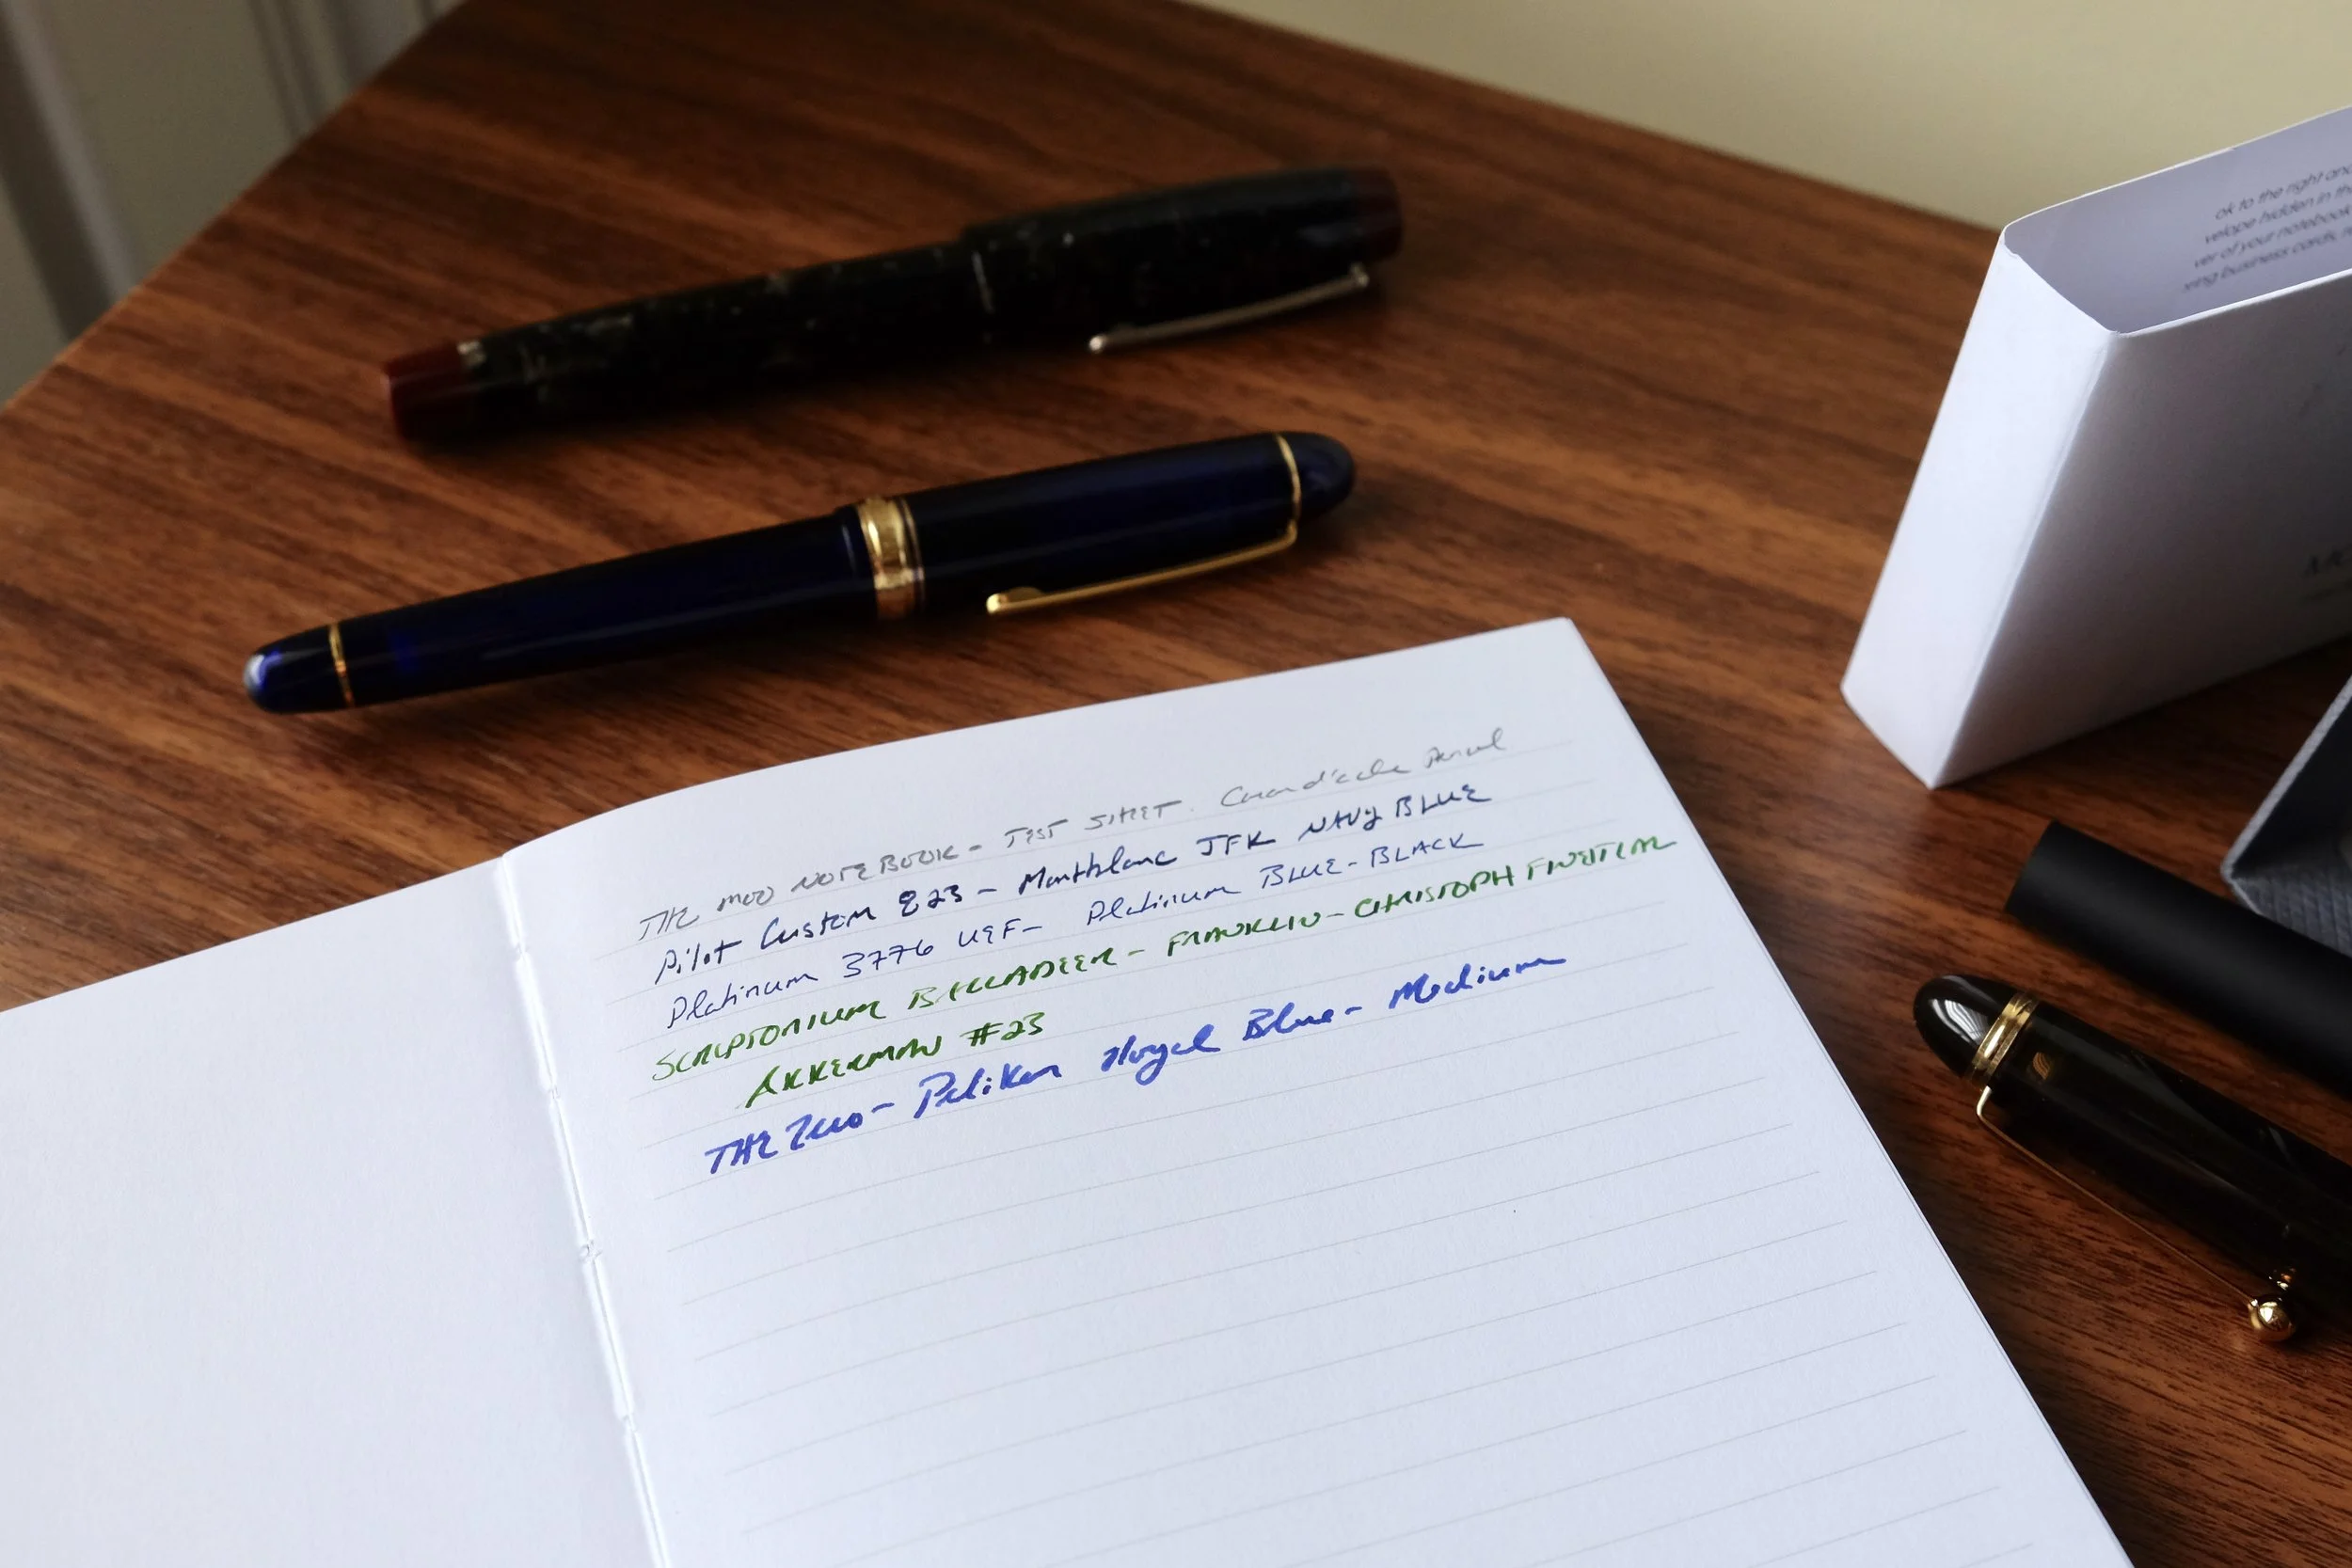 THE MOO NOTEBOOK - TEST SHEET. Caran d'ache Pencil
Pilot Custom 823 - Montblanc JFK NAVY BLUE
Platinum 3776 UEF - Platinum BLUE-BLACK
SCRIPTORIUM BALLADEER - FRANKLIN-CHRISTOPH
AKKERMAN #23
THE - Pelikan Royal Blue - Medium
ok to the right and
velope hidden in the
ver of your notebook
xing business cards,